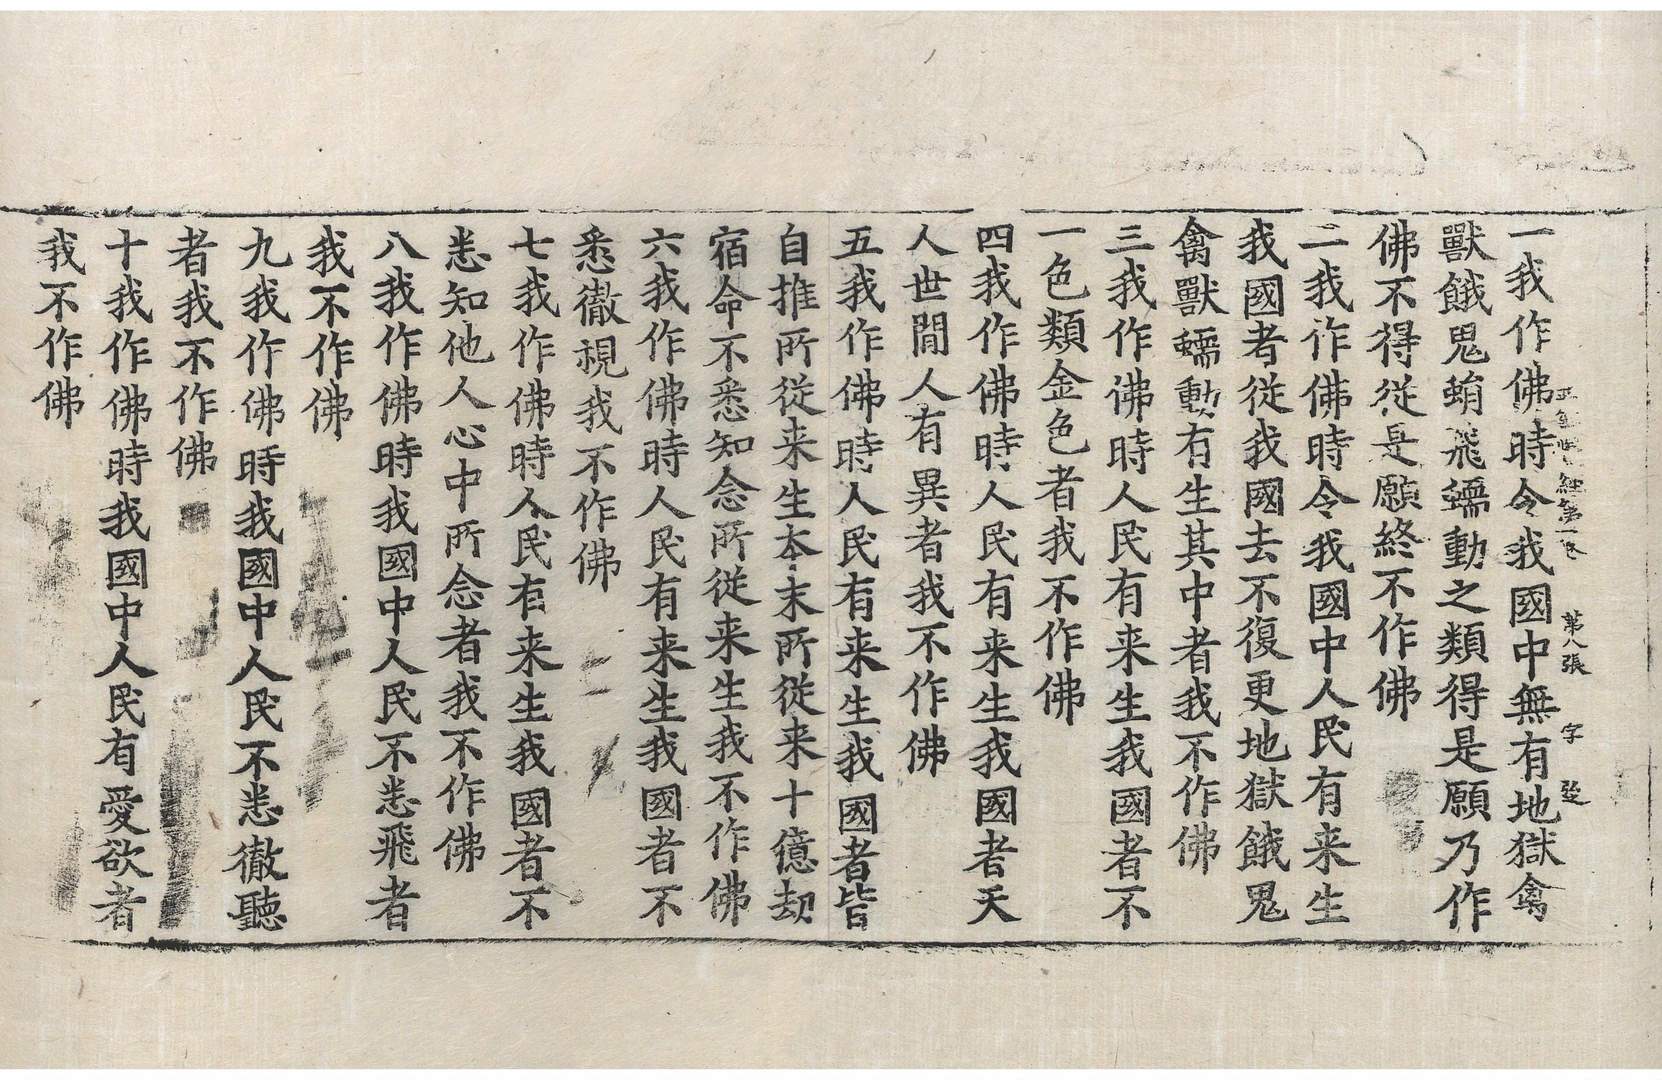 經第一卷 第八張 字
一我作佛時令我國中無有地獄禽
獸餓鬼蜎飛蠕動之類得是願乃作
佛不得從是願終不作佛
二我作佛時令我國中人民有来生
我國者從我國去不復更地獄餓鬼
禽獸蠕動有生其中者我不作佛
三我作佛時人民有来生我國者不
一色類金色者我不作佛
四我作佛時人民有来生我國者天
人世間人有異者我不作佛
五我作佛時人民有来生我國者皆
自推所從来生本末所從来十億劫
宿命不悉知念所從来生我不作佛
六我作佛時人民有来生我國者不
悉徹視我不作佛
七我作佛時人民有来生我國者不
悉知他人心中所念者我不作佛
八我作佛時我國中人民不悉飛者
我不作佛
九我作佛時我國中人民不悉徹聽
者我不作佛
十我作佛時我國中人民有愛欲者
我不作佛